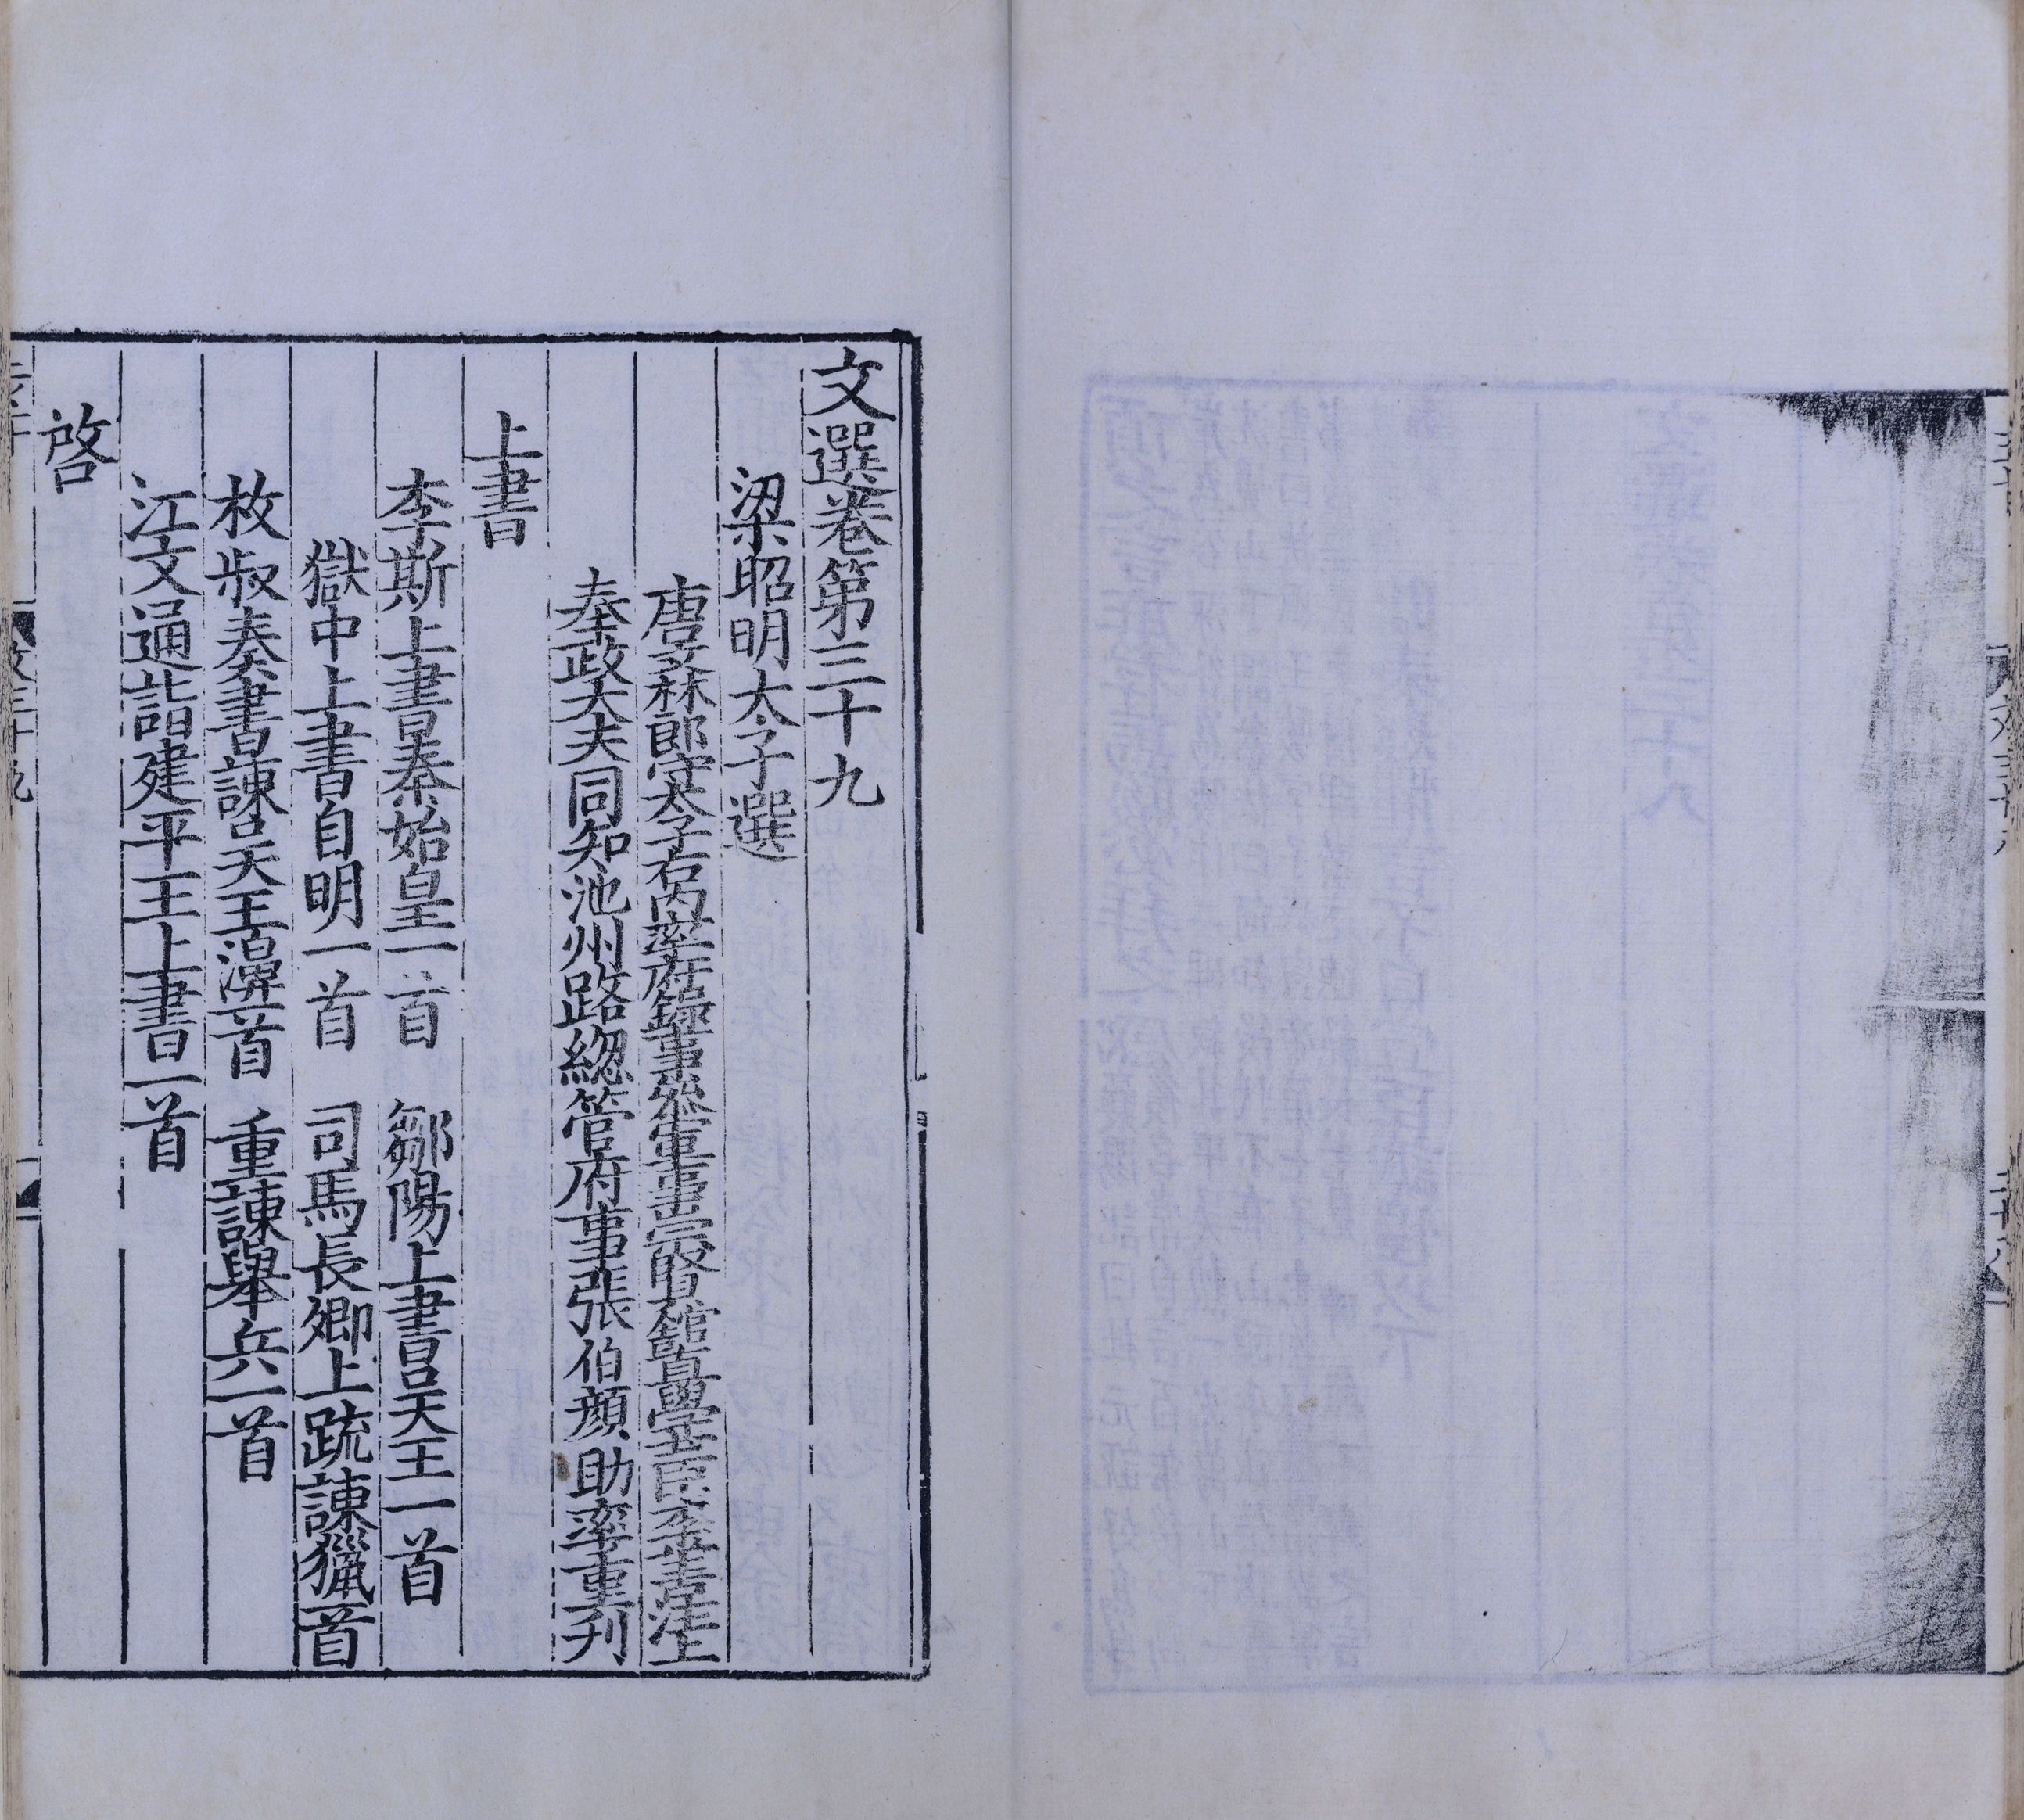 文選卷第三十九
梁昭明太子選
唐文林郎守太子右内率府錄事叅軍事崇賢館直學士臣李善注上
奉政大夫同知池州路緫管府事張伯顔助率重刋
上書
李斯上書秦始皇一首　鄒陽上書吴王一首
獄中上書自明一首　司馬長卿上䟽諌獵一首
枚叔奏書諌吴王濞一首　重諌舉兵一首
江文通詣建平王上書一首
啓